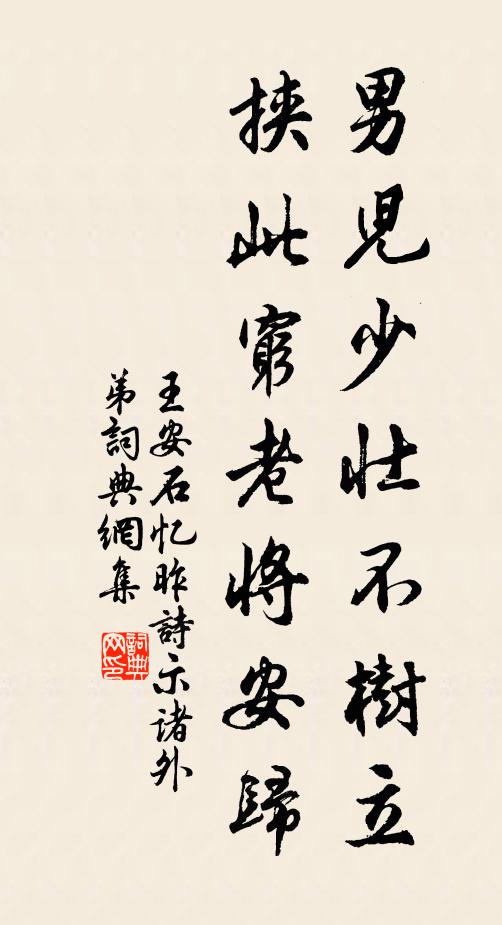 男兒少壯不樹立
挾此窮老將安歸
王安石忆昨詩示諸外
弟詞典網集
詞典
网印